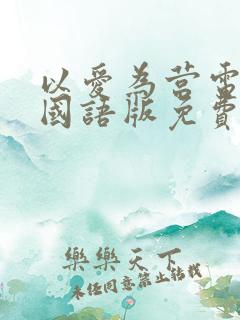 以愛為營電
國語版免費
樂樂天下
未任同意禁止轉載